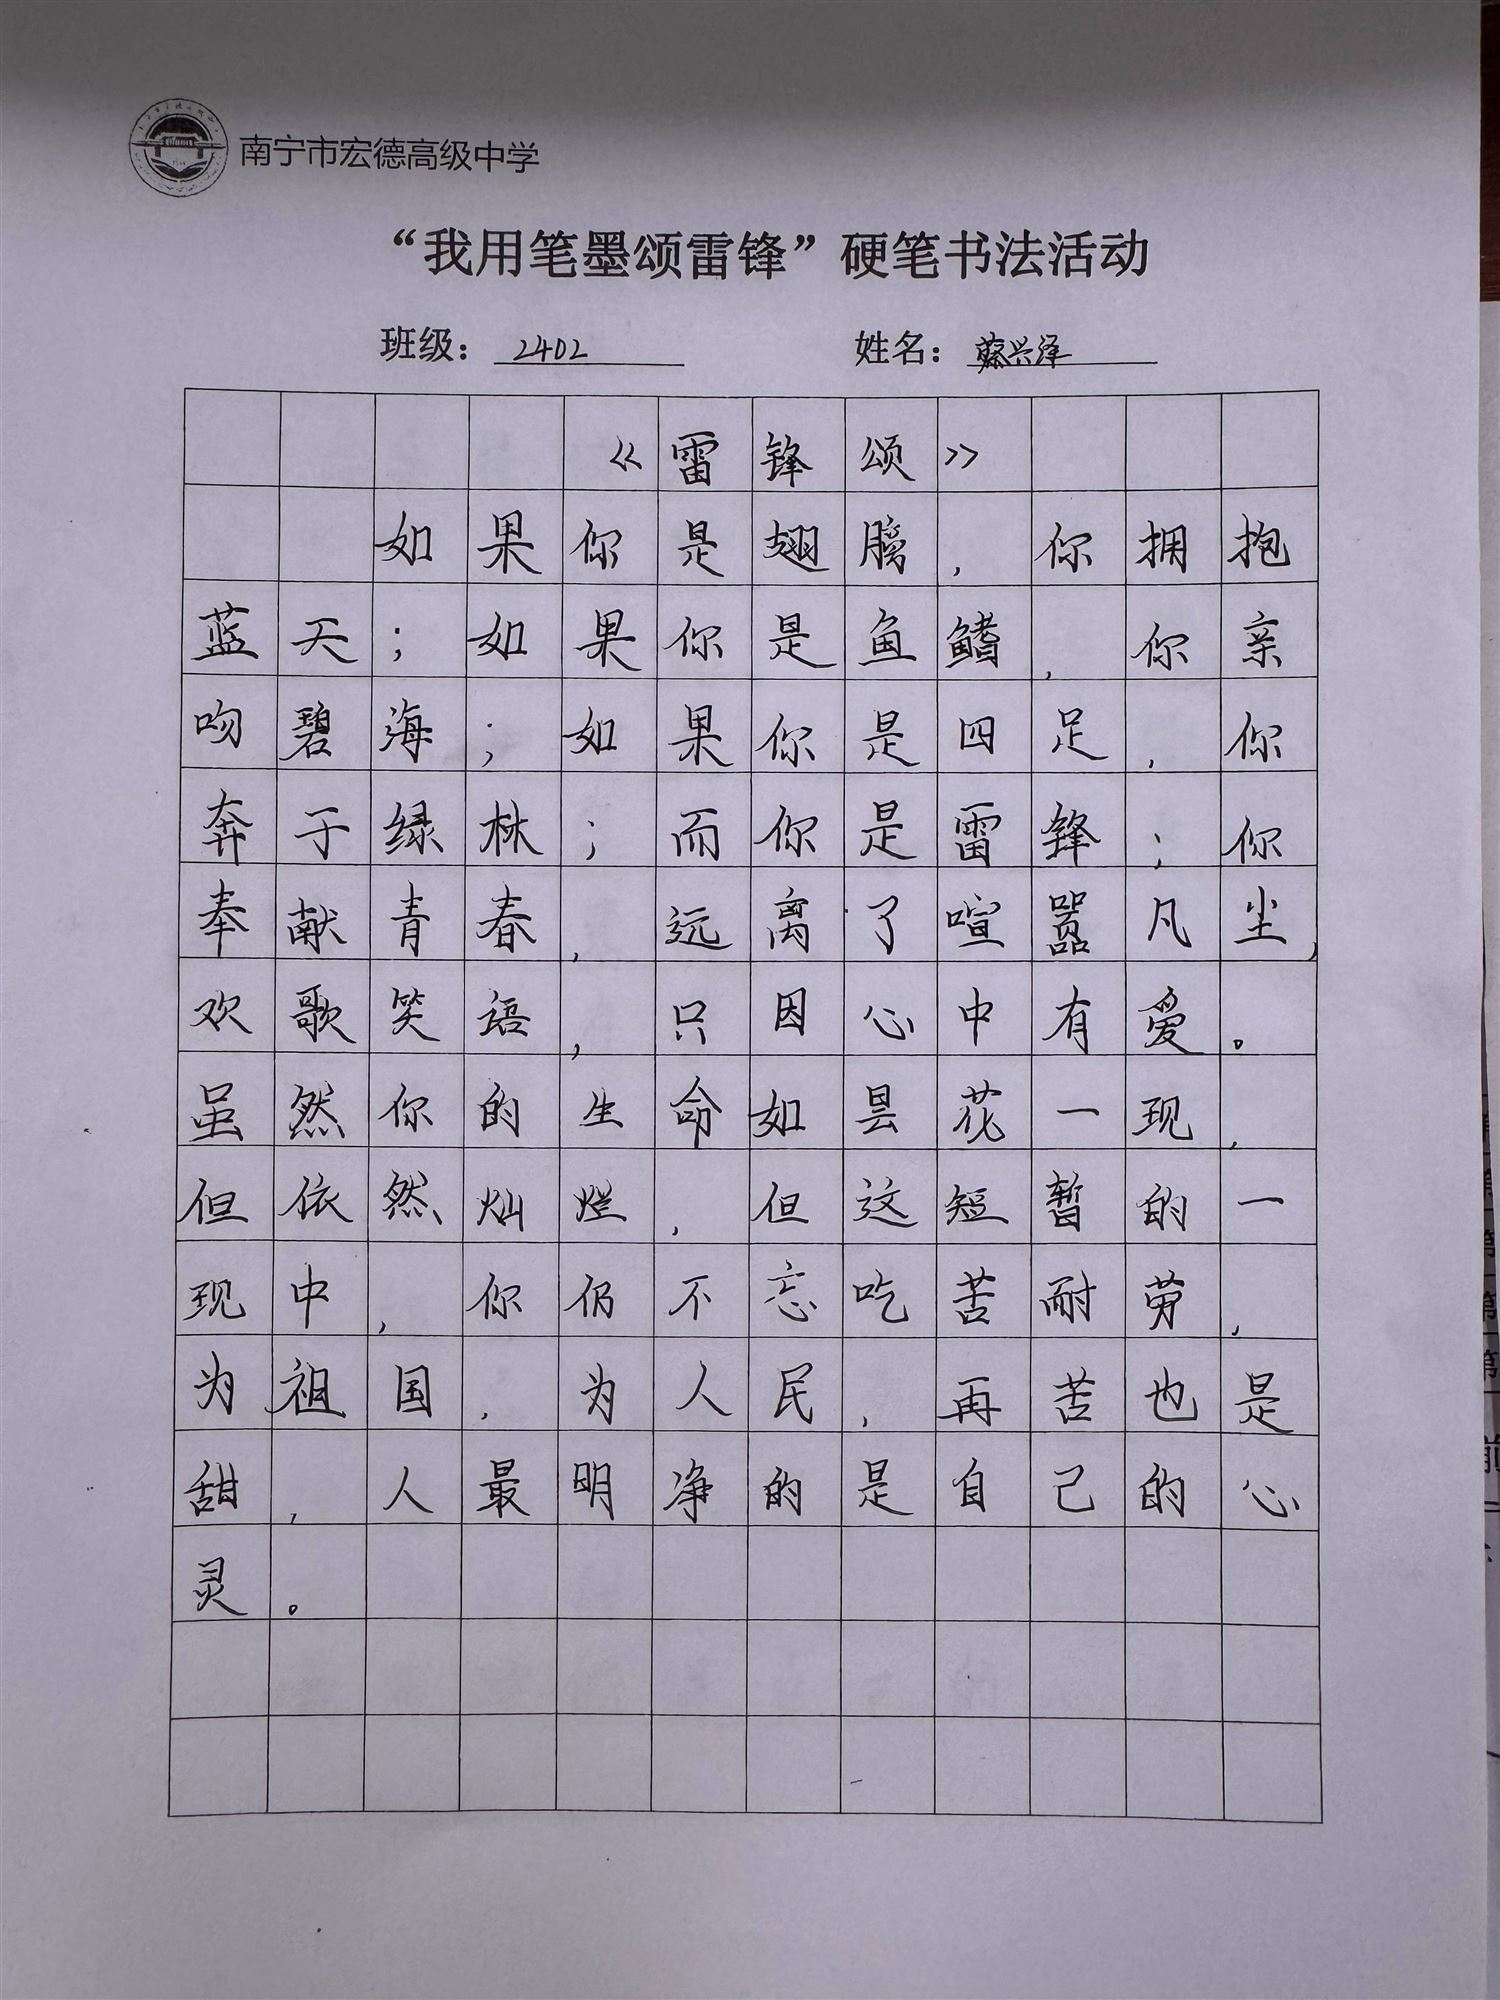 南宁市宏德高级中学
“我用笔墨颂雷锋”硬笔书法活动
班级：2402 姓名：蔡兴泽
《雷锋颂》
如果你是翅膀，你拥抱
蓝天；如果你是鱼鳍，你亲
吻碧海；如果你是四足，你
奔于绿林；而你是雷锋；你
奉献青春，远离了喧嚣凡尘，
欢歌笑语，只因心中有爱。
虽然你的生命如昙花一现，
但依然灿烂，但这短暂的一
现中，你仍不忘吃苦耐劳，
为祖国，为人民，再苦也是
甜，人最明净的是自己的心
灵。